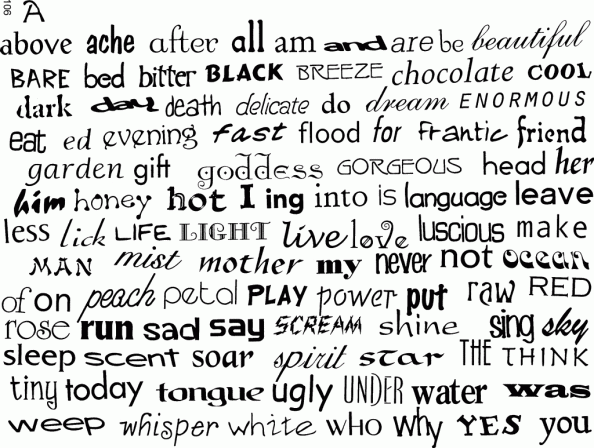 106 A
above ache after all am and are be beautiful
BARE bed bitter BLACK BREEZE chocolate COOL
dark day death delicate do dream ENORMOUS
eat ed evening fast flood for frantic friend
garden gift goddess GORGEOUS head her
him honey hot I ing into is language leave
less lick LIFE LIGHT live love luscious make
MAN mist mother my never not ocean
of on peach petal PLAY power put raw RED
rose run sad say SCREAM shine sing sky
sleep scent soar spirit star THE THINK
tiny today tongue ugly UNDER water was
weep whisper white WHO why YES you